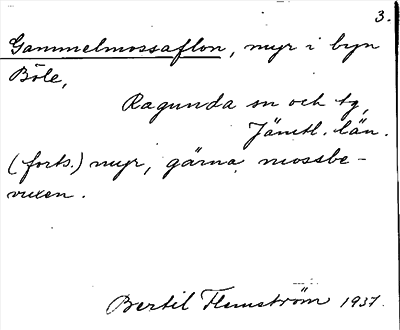 3.
Gammelmossaflon, myr i byn
Böle,
Ragunda sn och tg,
Jämtl. län.
(forts.) myr, gärna mossbe-
vuxen.
Bertil Flemström 1937.